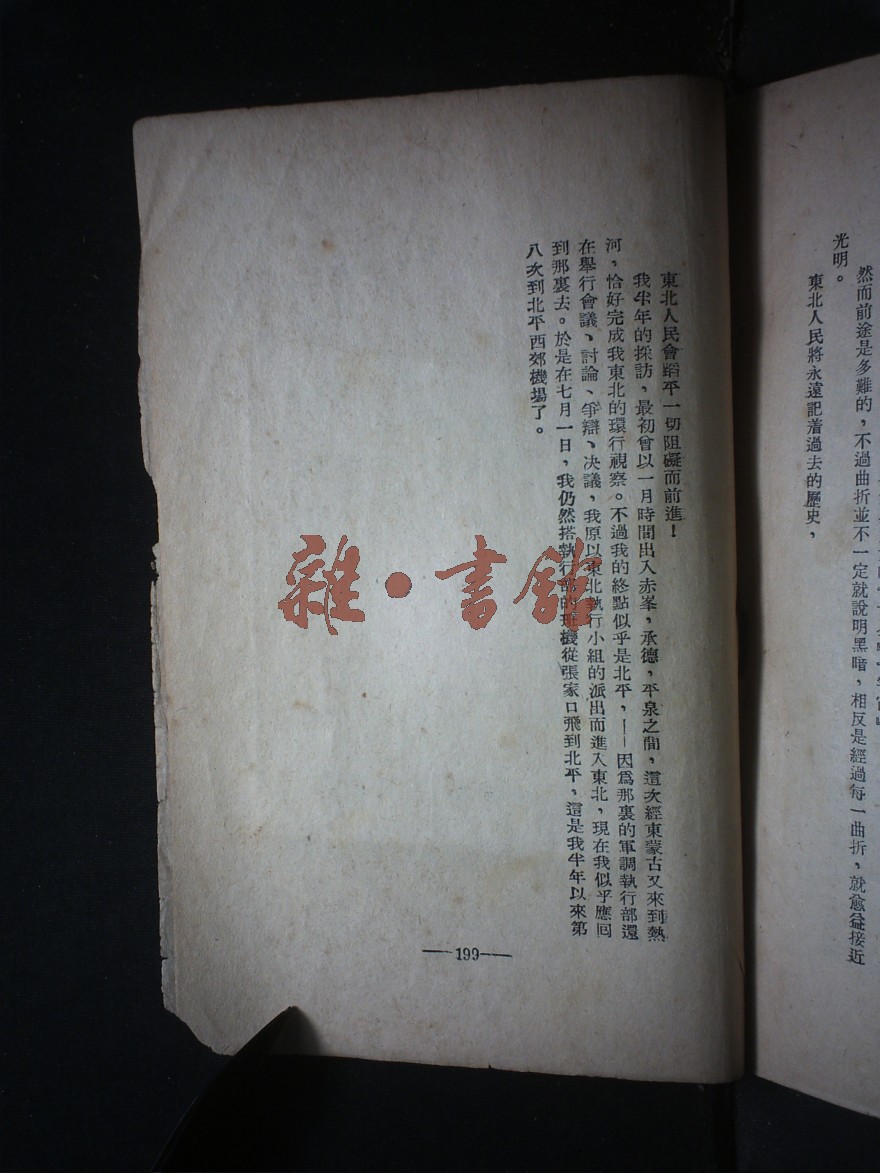 然而前途是多難的，不過曲折並不一定就說明黑暗，相反是經過每一曲折，就愈益接近
光明。
東北人民將永遠記着過去的歷史，
東北人民會蹈平一切阻礙而前進！
我半年的採訪，最初曾以一月時間出入赤峯，承德，平泉之間，這次經東蒙古又來到熱
河，恰好完成我東北的環行視察。不過我的終點似乎是北平，——因爲那裏的軍調執行部還
在舉行會議、討論、爭辯、決議，我原以東北執行小組的派出而進入東北，現在我似乎應囘
到那裏去。於是在七月一日，我仍然搭執行部的班機從張家口飛到北平，這是我半年以來第
八次到北平西郊機場了。
—199—
雜·書館